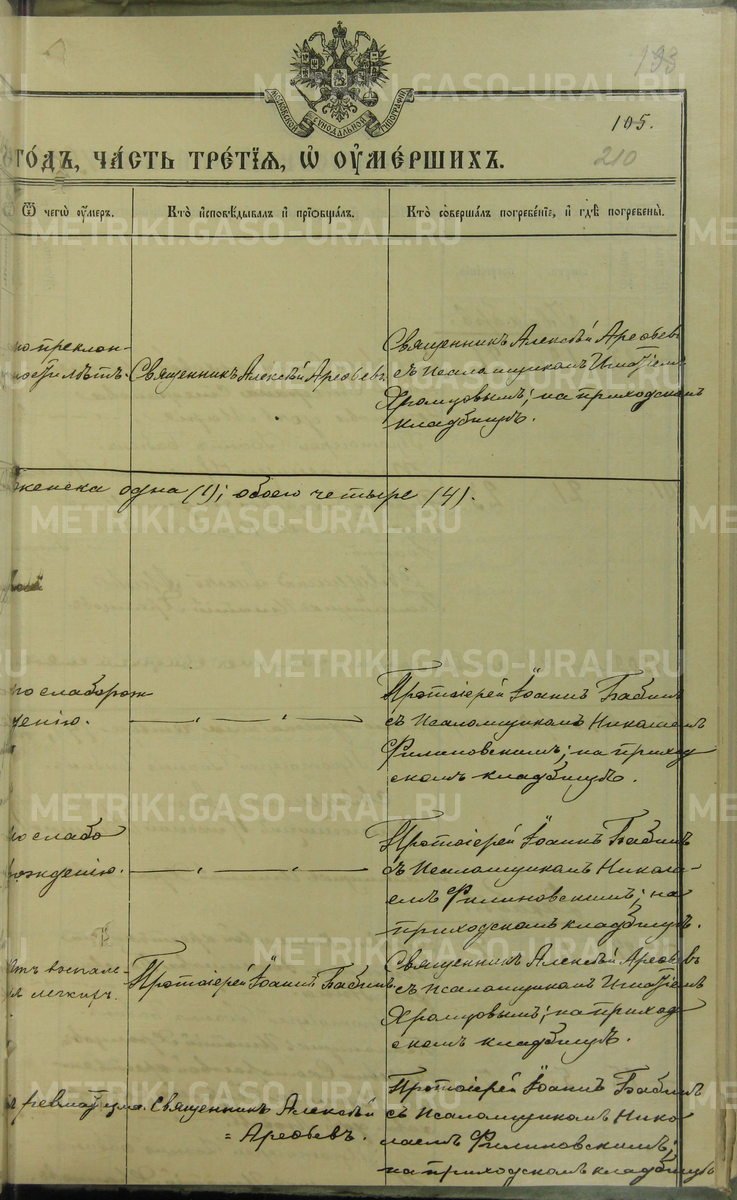 193
105.
210
МОСКОВСКОЙ СѴНОДАЛЬНОЙ ТИПОГРАФІИ
го́дъ, ча́сть тре́тїѧ, ѡ҆ ᲂу҆ме́ршихъ.
Ѿ чегѡ̀ ᲂу҆́меръ.
Кто̀ и҆сповѣ́дывалъ и҆ прїѡбща́лъ.
Кто̀ соверша́лъ погребе́нїе, и҆ гдѣ̀ погребены̀.
преклон-
лѣтъ.
Священникъ Алексѣй Арефьевъ.
Священникъ Алексѣй Арефьевъ
съ Псаломщикомъ Игнатіемъ
Хромцовымъ; на приходскомъ
кладбищѣ.
женска одна (1); обоего четыре (4).
по слаборож
денію.
Протоіерей Іоаннъ Бабинъ
съ Псаломщикомъ Николаемъ
Филиновскимъ; на приход
скомъ кладбищѣ.
по слабо
рожденію.
Протоіерей Іоаннъ Бабинъ
съ Псаломщикомъ Никола-
емъ Филиновскимъ; на
приходскомъ кладбищѣ.
отъ воспале-
легкихъ.
Протоіерей Іоаннъ Бабинъ
Священникъ Алексѣй Арефьевъ
съ Псаломщикомъ Игнатіемъ
Хромцовымъ; на приход
скомъ кладбищѣ.
ревматизма.
Священникъ Алексѣй
= Арефьевъ.
Протоіерей Іоаннъ Бабинъ
съ Псаломщикомъ Нико
лаемъ Филиновскимъ;
на приходскомъ кладбищѣ
METRIKI.GASO-URAL.RU